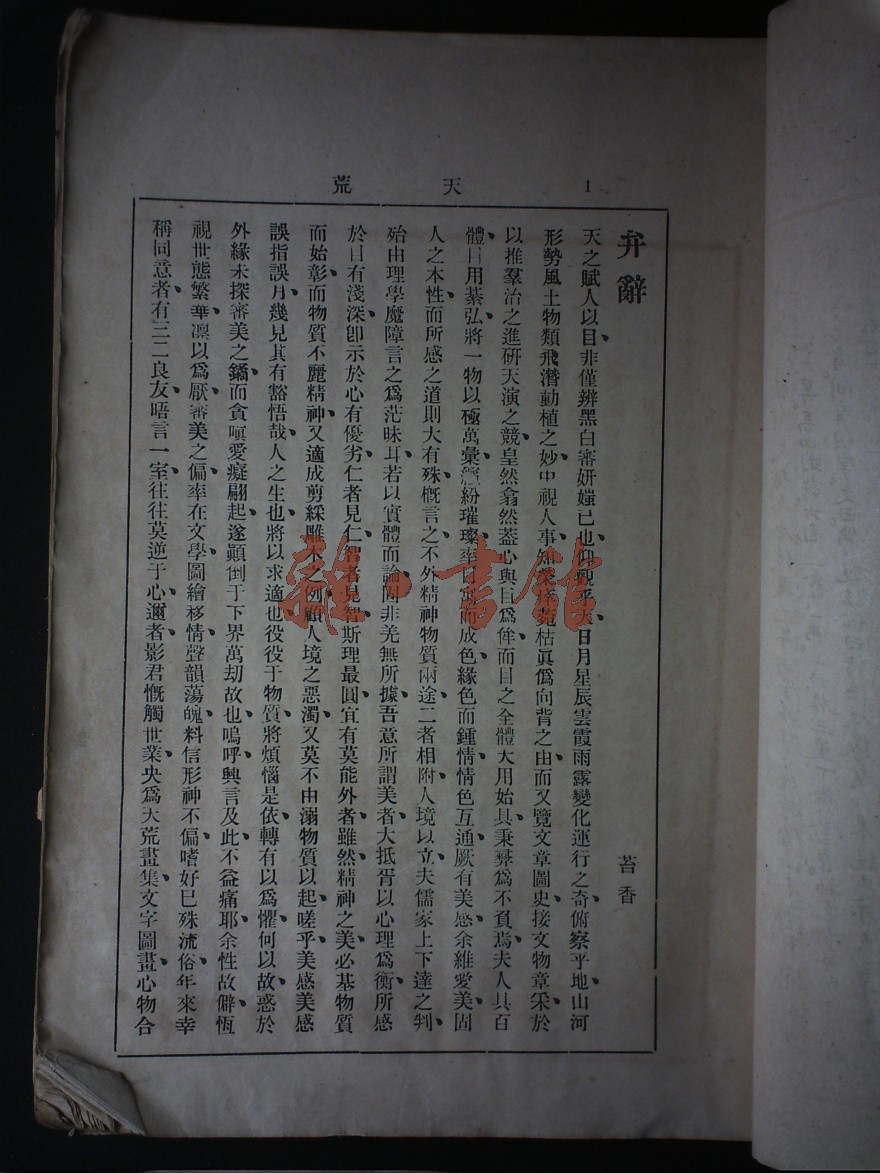 天荒
1
弁辭
苔香
天之賦人以目非僅辨黑白審妍媸已也仰觀乎天日月星辰雲霞雨露變化運行之奇俯察乎地山河
形勢風土物類飛潛動植之妙中視人事知榮枯真僞向背之由而又覽文章圖史接文物章采於
以推羣治之進研天演之競皇然翕然蓋心與目爲侔而目之全體大用始具秉彝爲不負焉夫人具百
體目用綦弘將一物以極萬彙紛璀璨率目寓而成色緣色而鍾情情色互通厥有美感余維愛美固
人之本性而所感之道則大有殊慨言之不外精神物質兩途二者相附人境以立夫儒家上下達之判
殆由理學魔障言之爲茫昧耳若以實體而論闻非羌無所據吾意所謂美者大抵胥以心理爲衡所感
於目有淺深卽示於心有優劣仁者見仁智者見智斯理最圓宜有莫能外者雖然精神之美必基物質
而始彰而物質不麗精神又適成剪綵雕木之例顧人境之惡濁又莫不由溺物質以起嗟乎美感美感
誤指誤月幾見其有豁悟哉人之生也將以求適也役役于物質將煩惱是依轉有以爲懼何以故惑於
外緣未探審美之鐍而貪嗔愛癡翩起遂顚倒于下界萬劫故也嗚呼興言及此不益痛耶余性故僻恆
視世態繁華凛以爲厭審美之偏率在文學圖繪移情聲韻蕩魄料信形神不偏嗜好已殊流俗年來幸
稱同意者有三二良友晤言一室往往莫逆于心邇者影君慨觸世業央爲天荒畫集文字圖畫心物合
雜·書館